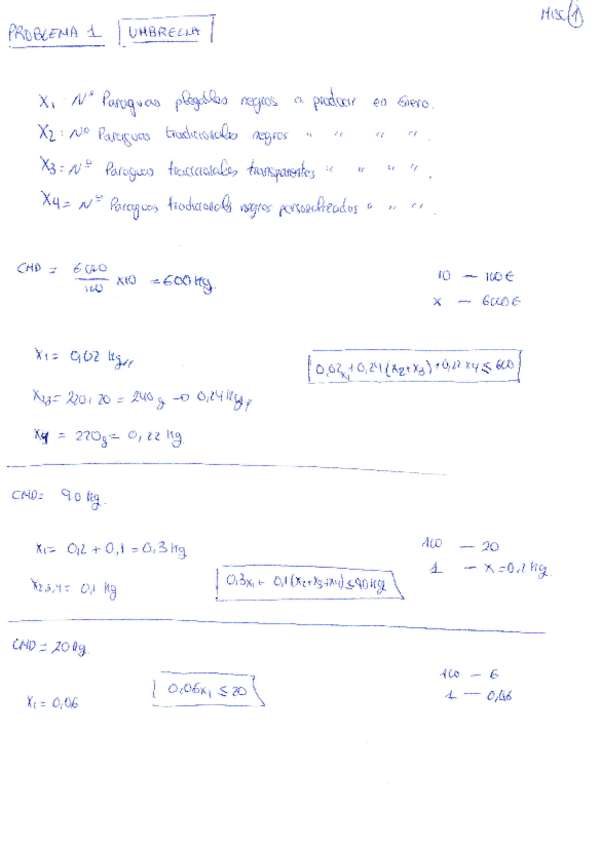 MISC 1
PROBLEMA 1 UMBRELLA
X1 Nº Paraguas plegables negros a producir en Enero.
X2: Nº Paraguas tradicionales negros " " " " .
X3 = Nº Paraguas tradicionales transparentes " " " " .
X4 = Nº Paraguas tradicionales negros personalizados " " " .
CMD = 6000/100 x10 = 600 Kg.
10 — 100€
x — 6000€
X1 = 0,02 Kg,,
0,02x1 + 0,24(x2+x3) + 0,22x4 ≤ 600
X23 = 220+20 = 240g → 0,24 Kg,,
X4 = 220g = 0,22 Kg.
CMD = 90 Kg.
X1 = 0,2 + 0,1 = 0,3 Kg
100 — 20
1 — x = 0,2 Kg.
X2,3,4 = 0,1 Kg
0,3x1 + 0,1(x2+x3+x4) ≤ 90 Kg
CMD = 20 Kg.
X1 = 0,06
0,06x1 ≤ 20
100 — 6
1 — 0,06